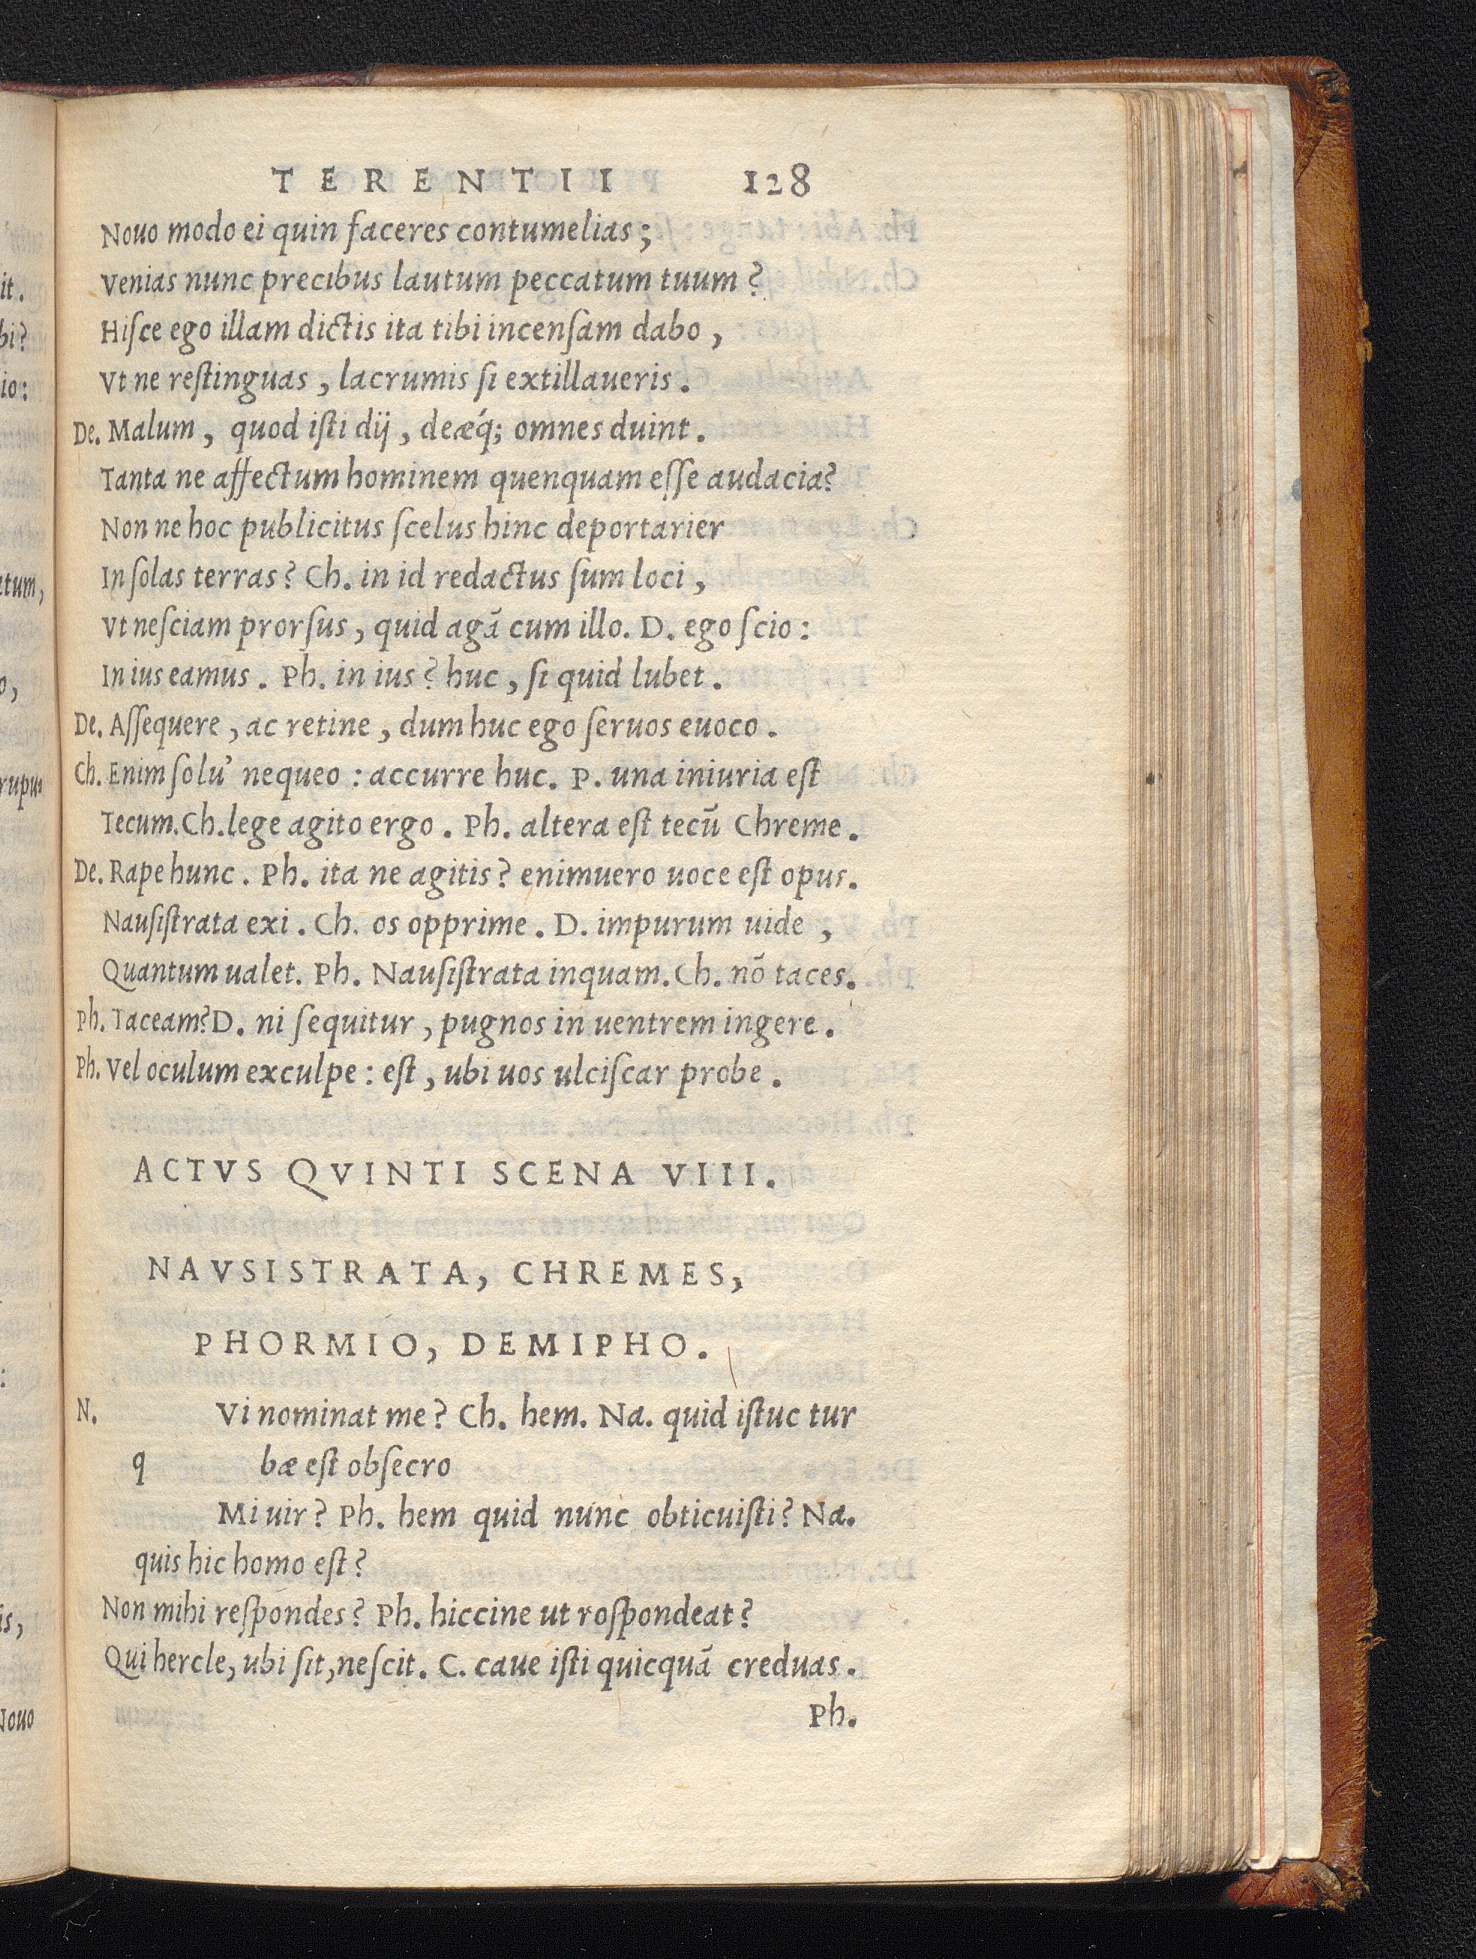 TERENTII 128
Nouo modo ei quin faceres contumelias;
Venias nunc precibus lautum peccatum tuum?
Hiſce ego illam dictis ita tibi incenſam dabo,
Vt ne reſtinguas, lacrumis ſi extillaueris.
De. Malum, quod iſti dij, deæq́; omnes duint.
Tanta ne affectum hominem quenquam eſſe audacia?
Non ne hoc publicitus ſcelus hinc deportarier
In ſolas terras? Ch. in id redactus ſum loci,
Vt neſciam prorſus, quid agã cum illo. D. ego ſcio:
In ius eamus. Ph. in ius? huc, ſi quid lubet.
De. Aſſequere, ac retine, dum huc ego ſeruos euoco.
Ch. Enim ſolu' nequeo: accurre huc. P. una iniuria eſt
Tecum. Ch. lege agito ergo. Ph. altera eſt tecũ Chreme.
De. Rape hunc. Ph. ita ne agitis? enimuero uoce eſt opus.
Nauſiſtrata exi. Ch. os opprime. D. impurum uide,
Quantum ualet. Ph. Nauſiſtrata inquam. Ch. nõ taces.
Ph. Taceam? D. ni ſequitur, pugnos in uentrem ingere.
Ph. Vel oculum exculpe: eſt, ubi uos ulciſcar probe.
ACTVS QVINTI SCENA VIII.
NAVSISTRATA, CHREMES,
PHORMIO, DEMIPHO.
N. Vi nominat me? Ch. hem. Na. quid iſtuc tur
q bæ eſt obſecro
Mi uir? Ph. hem quid nunc obticuiſti? Na.
quis hic homo eſt?
Non mihi reſpondes? Ph. hiccine ut roſpondeat?
Qui hercle, ubi ſit, neſcit. C. caue iſti quicquã creduas.
Ph.
it.
bi?
io:
tum,
o,
rupu
:
is,
Nouo